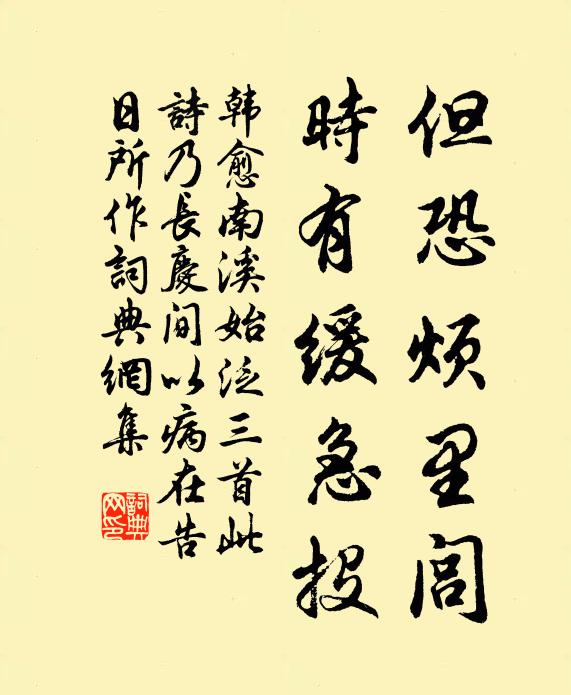 但恐烦里闾
時有緩急投
韩愈南溪始泛三首此
詩乃長慶间以病在告
日所作詞典網集
詞典
网印